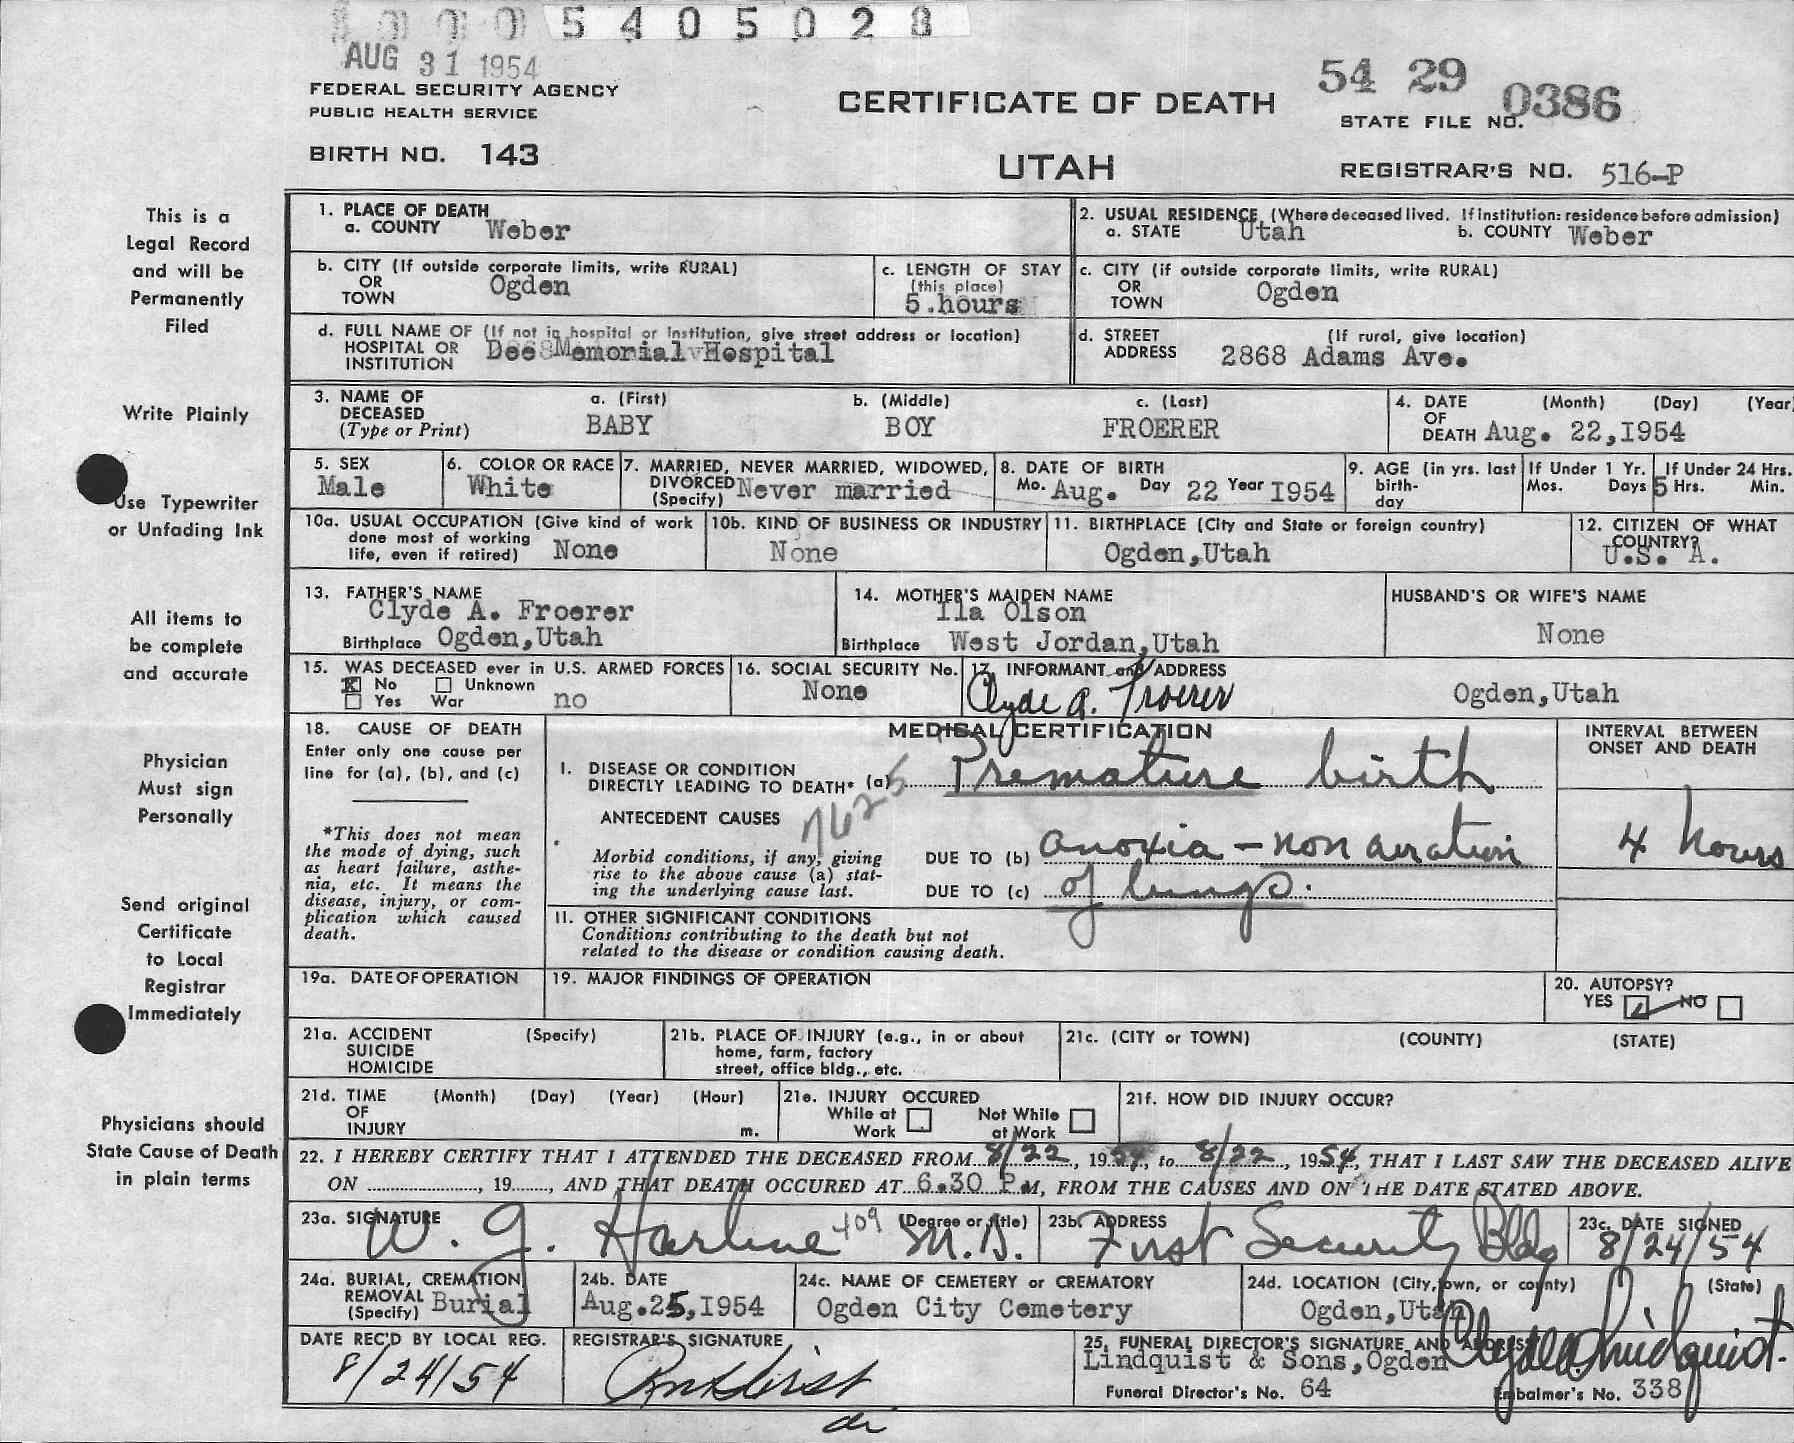 0005405028
AUG 31 1954
FEDERAL SECURITY AGENCY
PUBLIC HEALTH SERVICE
BIRTH NO. 143
CERTIFICATE OF DEATH
UTAH
54 29 0386
STATE FILE NO.
REGISTRAR'S NO. 516-P
This is a
Legal Record
and will be
Permanently
Filed
Write Plainly
Use Typewriter
or Unfading Ink
All items to
be complete
and accurate
Physician
Must sign
Personally
Send original
Certificate
to Local
Registrar
Immediately
Physicians should
State Cause of Death
in plain terms
1. PLACE OF DEATH
a. COUNTY Weber
2. USUAL RESIDENCE (Where deceased lived. If institution: residence before admission)
a. STATE Utah b. COUNTY Weber
b. CITY (If outside corporate limits, write RURAL)
OR
TOWN Ogden
c. LENGTH OF STAY
(this place)
5 hours
c. CITY (if outside corporate limits, write RURAL)
OR
TOWN Ogden
d. FULL NAME OF (If not in hospital or institution, give street address or location)
HOSPITAL OR
INSTITUTION Dee Memorial Hospital
d. STREET (If rural, give location)
ADDRESS 2868 Adams Ave.
3. NAME OF
DECEASED
(Type or Print)
a. (First) b. (Middle) c. (Last)
BABY BOY FROERER
4. DATE (Month) (Day) (Year)
OF
DEATH Aug. 22,1954
5. SEX
Male
6. COLOR OR RACE
White
7. MARRIED, NEVER MARRIED, WIDOWED,
DIVORCED
(Specify) Never married
8. DATE OF BIRTH
Mo. Aug. Day 22 Year 1954
9. AGE (in yrs. last
birth-
day
If Under 1 Yr.
Mos. Days
If Under 24 Hrs.
5 Hrs. Min.
10a. USUAL OCCUPATION (Give kind of work
done most of working
life, even if retired) None
10b. KIND OF BUSINESS OR INDUSTRY
None
11. BIRTHPLACE (City and State or foreign country)
Ogden,Utah
12. CITIZEN OF WHAT
COUNTRY?
U.S. A.
13. FATHER'S NAME
Clyde A. Froerer
Birthplace Ogden,Utah
14. MOTHER'S MAIDEN NAME
Ila Olson
Birthplace West Jordan,Utah
HUSBAND'S OR WIFE'S NAME
None
15. WAS DECEASED ever in U.S. ARMED FORCES
X No Unknown
Yes War no
16. SOCIAL SECURITY No.
None
17. INFORMANT and ADDRESS
Clyde A. Froerer Ogden,Utah
18. CAUSE OF DEATH
Enter only one cause per
line for (a), (b), and (c)
*This does not mean
the mode of dying, such
as heart failure, asthe-
nia, etc. It means the
disease, injury, or com-
plication which caused
death.
MEDICAL CERTIFICATION
I. DISEASE OR CONDITION
DIRECTLY LEADING TO DEATH* (a) Premature birth
7625
ANTECEDENT CAUSES
Morbid conditions, if any, giving
rise to the above cause (a) stat-
ing the underlying cause last.
DUE TO (b) anoxia - non aeration
DUE TO (c) of lungs.
II. OTHER SIGNIFICANT CONDITIONS
Conditions contributing to the death but not
related to the disease or condition causing death.
INTERVAL BETWEEN
ONSET AND DEATH
4 hours
19a. DATE OF OPERATION
19. MAJOR FINDINGS OF OPERATION
20. AUTOPSY?
YES NO
21a. ACCIDENT (Specify)
SUICIDE
HOMICIDE
21b. PLACE OF INJURY (e.g., in or about
home, farm, factory
street, office bldg., etc.
21c. (CITY or TOWN) (COUNTY) (STATE)
21d. TIME (Month) (Day) (Year) (Hour)
OF
INJURY m.
21e. INJURY OCCURED
While at Not While
Work at Work
21f. HOW DID INJURY OCCUR?
22. I HEREBY CERTIFY THAT I ATTENDED THE DECEASED FROM 8/22, 1954, to 8/22, 1954, THAT I LAST SAW THE DECEASED ALIVE
ON , 19 , AND THAT DEATH OCCURED AT 6.30 P.M, FROM THE CAUSES AND ON THE DATE STATED ABOVE.
23a. SIGNATURE (Degree or title)
W. J. Harline 409 M.D.
23b. ADDRESS
First Security Bldg
23c. DATE SIGNED
8/24/54
24a. BURIAL, CREMATION
REMOVAL
(Specify) Burial
24b. DATE
Aug.25,1954
24c. NAME OF CEMETERY or CREMATORY
Ogden City Cemetery
24d. LOCATION (City, town, or county) (State)
Ogden,Utah
DATE REC'D BY LOCAL REG.
8/24/54
REGISTRAR'S SIGNATURE
25. FUNERAL DIRECTOR'S SIGNATURE AND ADDRESS
Lindquist & Sons,Ogden Clyde Lindquist.
Funeral Director's No. 64 Embalmer's No. 338